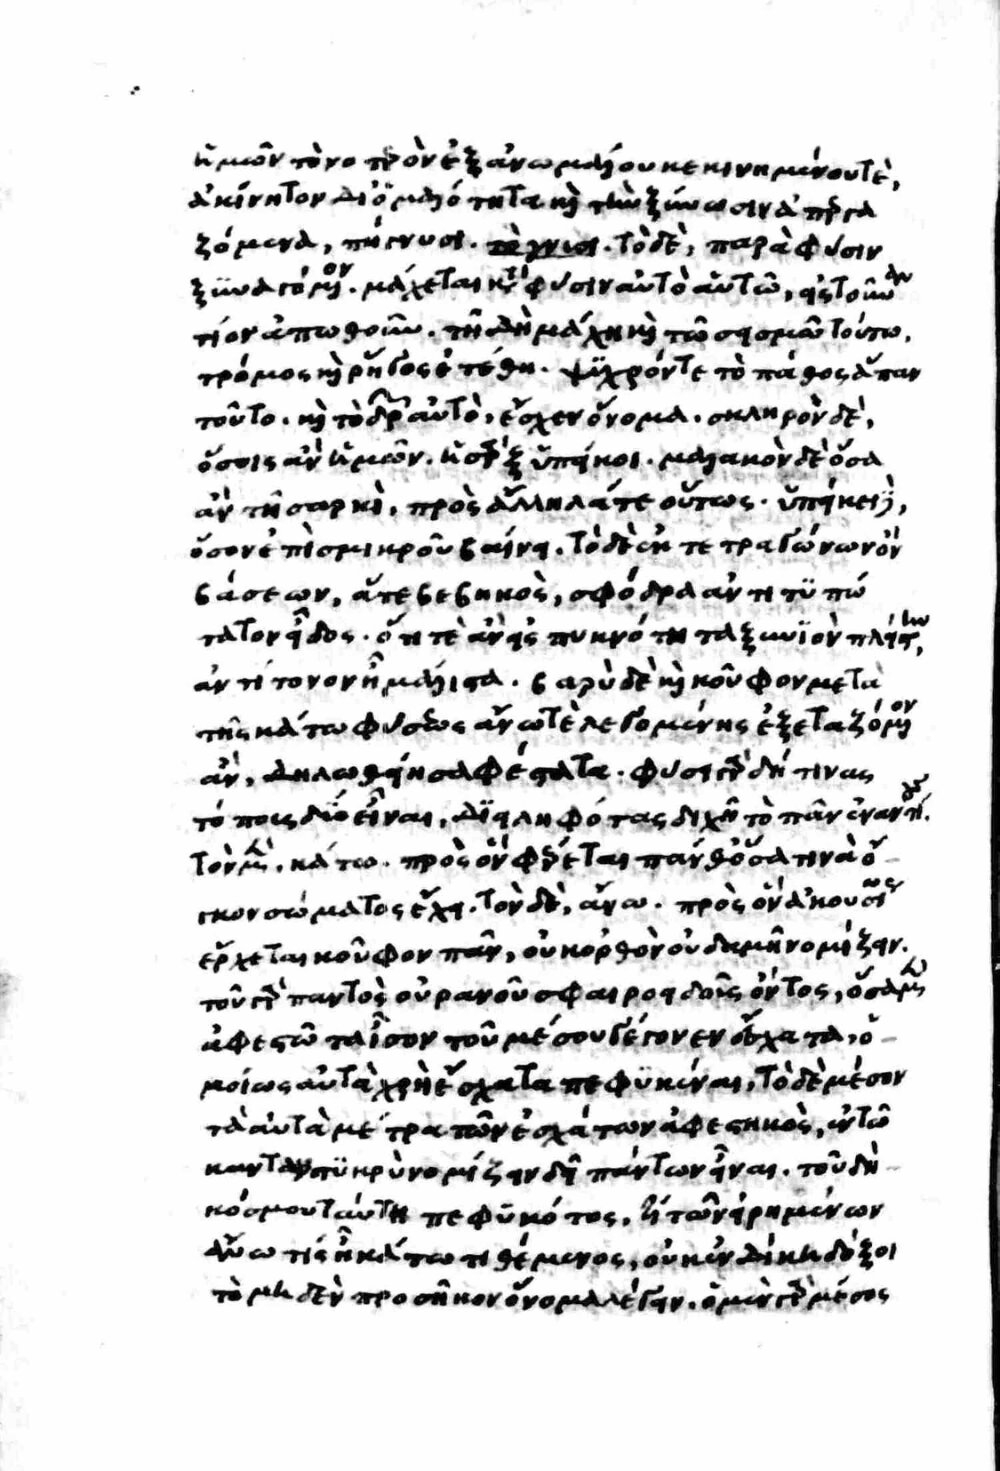 ἡμῶν τὸ νοτερὸν ἐξ ἀνωμάλου κεκινημένου τὲ,
ἀκίνητον δι' ὁμαλότητα καὶ τὴν ξύνωσιν ἀπεργα
ζόμενα, πήγνυσι. τὸ δὲ, παρὰ φύσιν
ξυναγόμενον. μάχεται κατὰ φύσιν αὐτὸ αὑτῶ, εἰς τοὐναν
τίον ἀπωθοῦν. τῆ δὴ μάχη καὶ τῶ σεισμῶ τούτω,
τρόμος καὶ ῥῖγος ἐτέθη. ψυχρόν τε τὸ πάθος ἅπαν
τοῦτο. καὶ τὸ δρῶν αὐτὸ, ἔσχεν ὄνομα. σκληρὸν δὲ,
ὅσοις ἂν ἡμῶν. ἡ σὰρξ ὑπείκοι. μαλακὸν δὲ ὅσα
ἂν τῆ σαρκὶ, πρὸς ἄλληλά τε οὕτως. ὑπείκει δὲ,
ὅσον ἐπὶ σμικροῦ βαίνει. τὸ δὲ ἐκ τετραγώνων ὂν
βάσεων, ἅτε βεβηκὸς, σφόδρα ἀντιτυπώ
τατον εἶδος. ὅτι τὲ ἂν εἰς πυκνότητα ξυνϊὸν πλείστην,
ἀντίτονον ἦ μάλιστα. βαρὺ δὲ καὶ κοῦφον μετὰ
τῆς κάτω φύσεως ἄνω τὲ λεγομένης ἐξεταζόμενον
ἂν, δηλωθείη σαφέστατα. φύσει γὰρ δή τινας
τόπους δύο εἶναι, διειληφότας διχῆ τὸ πᾶν ἐναντίους.
τὸν μὲν, κάτω. πρὸς ὃν φέρεται πάνθ' ὅσα τινὰ ὄ-
γκον σώματος ἔχει. τὸν δὲ, ἄνω. πρὸς ὃν ἀκουσίως
ἔρχεται κοῦφον πᾶν, οὐκ ὀρθὸν οὐδαμῆ νομίζειν.
τοῦ γὰρ παντὸς οὐρανοῦ σφαιροειδοῦς ὄντος, ὅσα μὲν
ἀφεστῶτα ἴσον τοῦ μέσου γέγονεν ἔσχατα, ὁ-
μοίως αὐτὰ χρὴ ἔσχατα πεφυκέναι, τὸ δὲ μέσον
τὰ αὐτὰ μέτρα τῶν ἐσχάτων ἀφεστηκὸς, ἐν τῶ
καταντικρὺ νομίζειν δεῖ πάντων εἶναι. τοῦ δὴ
κόσμου ταύτη πεφυκότος, τί τῶν εἰρημένων
ἄνω τίς ἢ κάτω τιθέμενος, οὐκ ἐν δίκη δόξοι
τὸ μηδὲν προσῆκον ὄνομα λέγειν. ὁ μὲν γὰρ μέσος